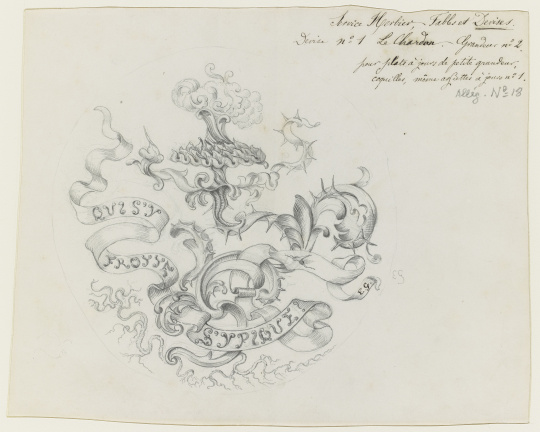 Service Herbier, Fables et Devises.
Devise nº 1 Le Chardon. - Grandeur nº 2.
pour plats à jours de petite grandeur,
coquilles, même assiettes à jours nº 1.
Allég - Nº 18
QUI S'Y
FROTTE
S'Y PIQUE